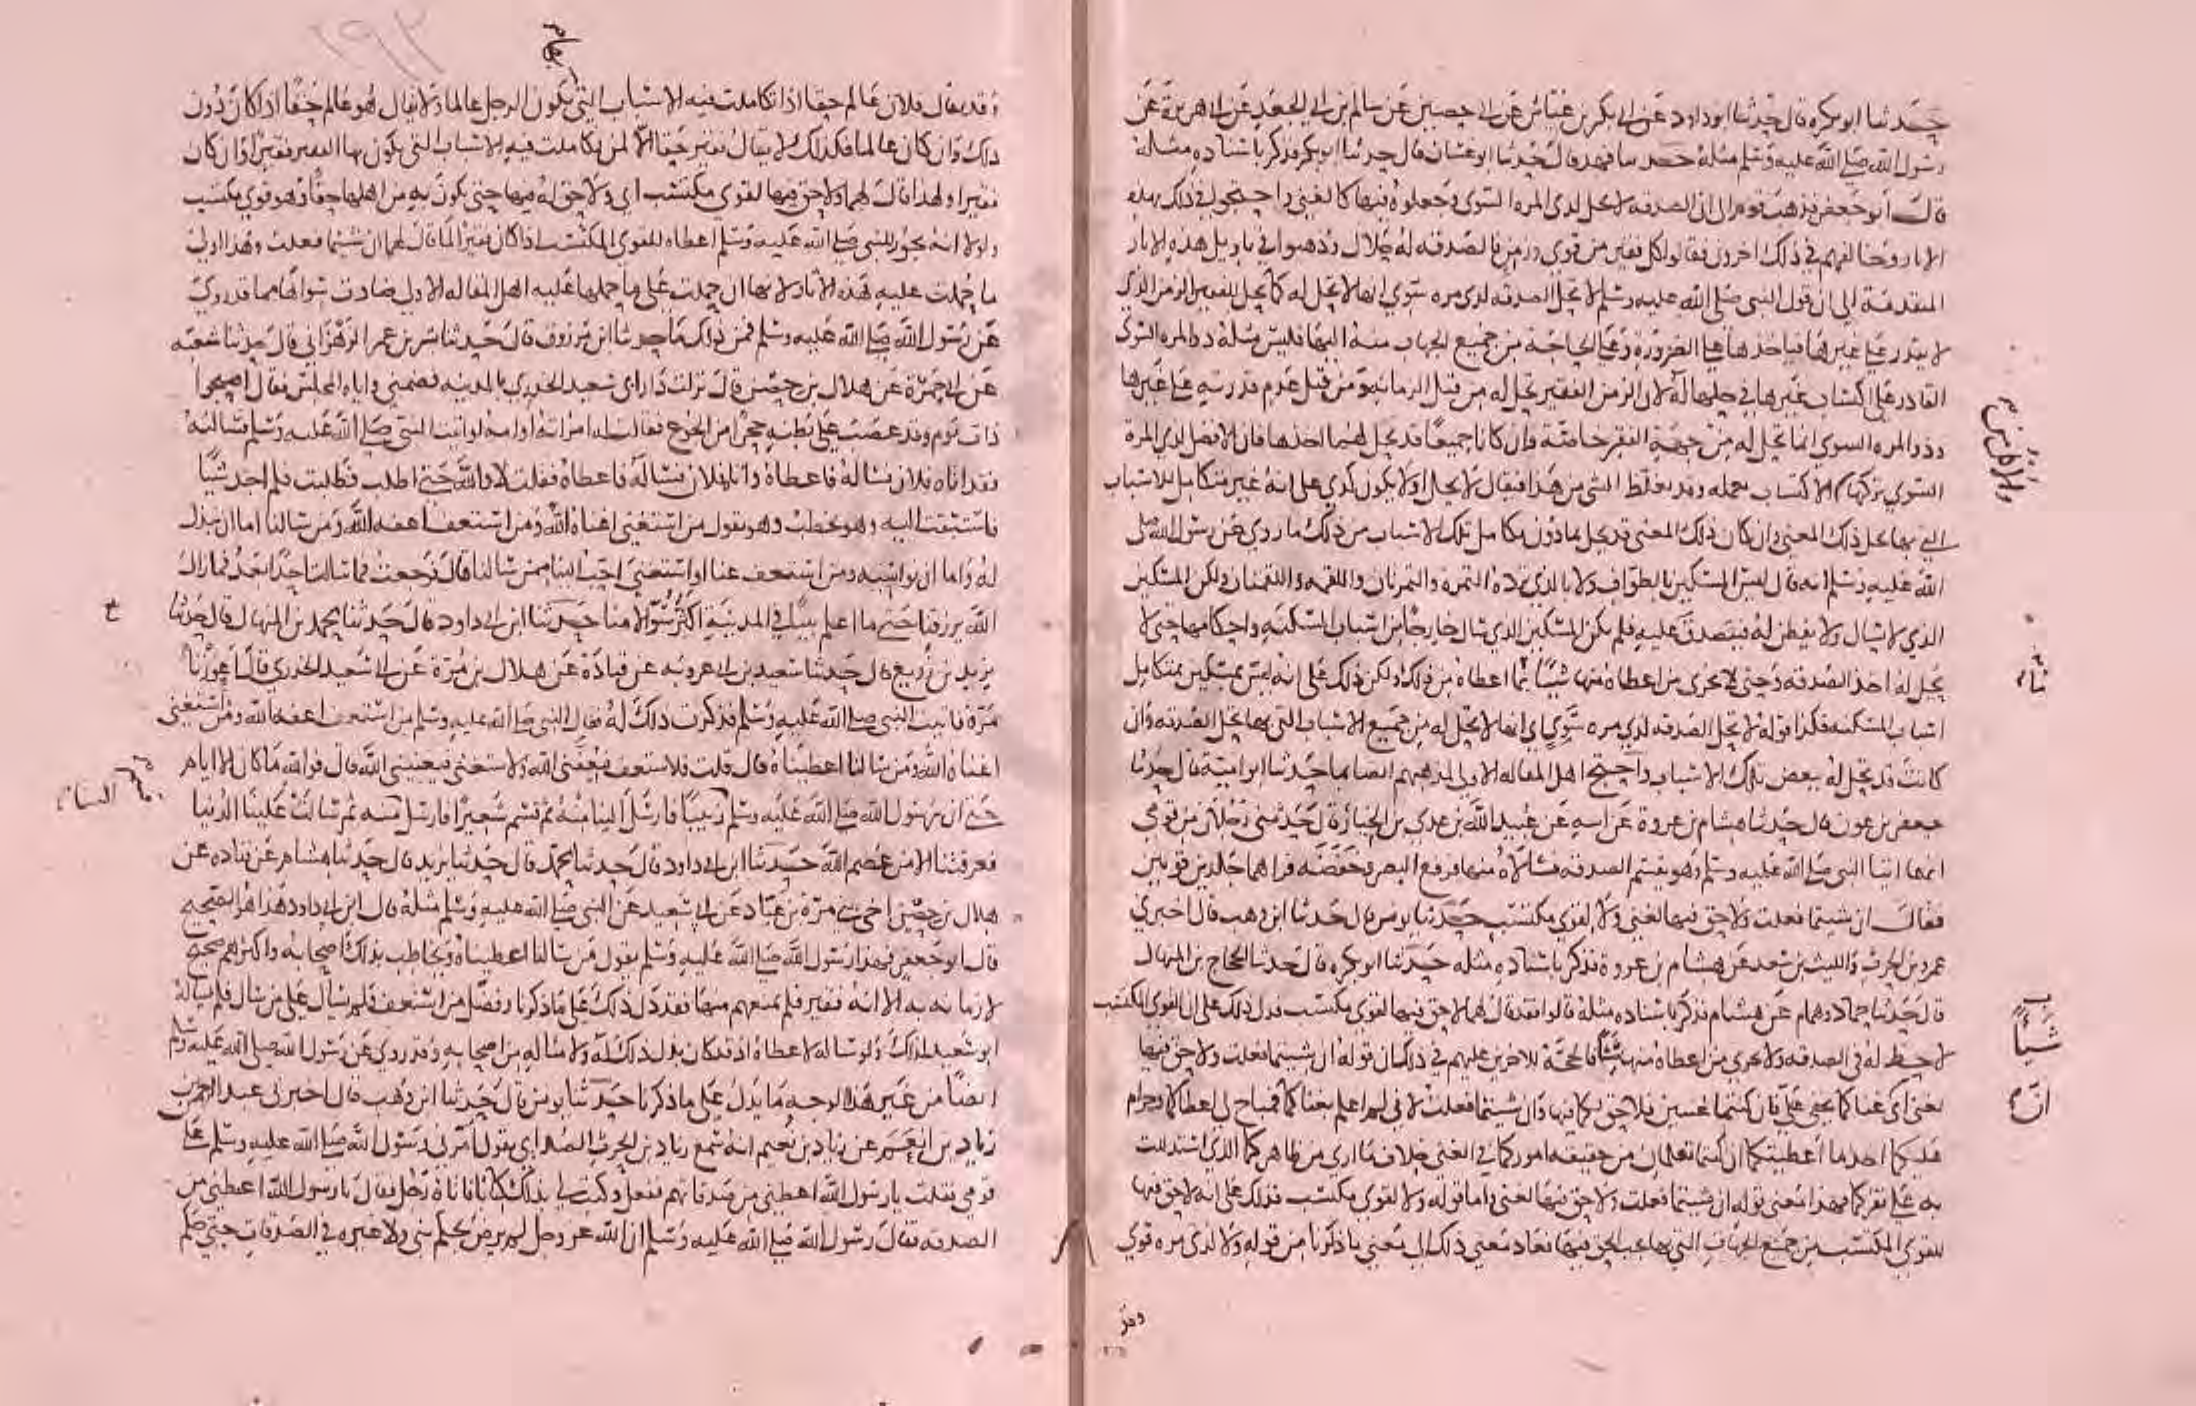 حدثنا ابو بكرة قال حدثنا ابو داود عن ابي بكر بن عياش عن ابي حصين عن سالم بن ابي الجعد عن ابي هريرة عن
رسول الله صلى الله عليه وسلم مثله حدثنا فهد قال حدثنا ابو غسان قال حدثنا ابو بكر فذكر باسناده مثله
قال ابو جعفر فذهب قوم الى ان الصدقة لا تحل لذي المرة السوي وجعلوه فيها كالغني واحتجوا في ذلك بهذه
الاثار وخالفهم في ذلك اخرون فقالوا كل فقير من قوي وزمن فالصدقة له حلال وذهبوا في تاويل هذه الاثار
المتقدمة الى ان قول النبي صلى الله عليه وسلم لا تحل الصدقة لذي مرة سوي اي انها لا تحل له كما تحل للفقير الزمن الذي
لا يقدر على غيرها فياخذها على الضرورة وعلى الحاجة من جميع الجهات منه اليها فليس مثله ذو المرة السوي
القادر على اكتساب غيرها في حلها له لان الزمن الفقير تحل له من قبل الزمانة ومن قبل عدم قدرته على غيرها
وذو المرة السوي انما تحل له من جهة الفقر خاصة وان كانا جميعا قد يحل لهما اخذها فان الافضل لذي المرة
السوي تركها والاكتساب بعمله وقد يغلظ الشي من هذا فيقال لا يحل او لا يكون كذي على انه غير متكامل للاسباب
التي بها يحل ذلك المعنى وان كان ذلك المعنى قد يحل بما دون تكامل تلك الاسباب من ذلك ما روي عن رسول الله صلى
الله عليه وسلم انه قال ليس المسكين بالطواف ولا بالذي ترده التمرة والتمرتان واللقمة واللقمتان ولكن المسكين
الذي لا يسال ولا يفطن له فيتصدق عليه فلم يكن المسكين الذي يسال خارجا من اسباب المسكنة واحكامها حتى لا
يحل له اخذ الصدقة وحتى لا يجزى من اعطاه منها شيئا مما اعطاه من ذلك ولكن ذلك على انه ليس بمسكين متكامل
اسباب المسكنة فكذا قوله لا تحل الصدقة لذي مرة سوي اي انها لا تحل له من جميع الاسباب التي بها تحل الصدقة وان
كانت قد تحل له ببعض تلك الاسباب واحتج اهل المقالة الاولى لمذهبهم ايضا بما حدثنا ابو امية قال حدثنا
جعفر بن عون قال حدثنا هشام بن عروة عن ابيه عن عبيد الله بن عدي بن الخيار قال حدثني رجلان من قومي
انهما اتيا النبي صلى الله عليه وسلم وهو يقسم الصدقة فسالاه منها فرفع البصر وخفضه فراهما جلدين قويين
فقال ان شيتما فعلت ولا حق فيها لغني ولا لقوي مكتسب حدثنا يونس قال حدثنا ابن وهب قال اخبرني
عمرو بن الحرث والليث بن سعد عن هشام بن عروة فذكر باسناده مثله حدثنا ابو بكرة قال حدثنا الحجاج بن المنهال
قال حدثنا حماد وهمام عن هشام فذكر باسناده مثله قالوا فقد قال لهما لا حق فيها لقوي مكتسب فدل ذلك على ان القوي المكتسب
لا حظ له في الصدقة ولا يجزي من اعطاه منها شيئا فالحجة للاخرين عليهم في ذلك ان قوله ان شيتما فعلت ولا حق فيها
لغني اي غناكما يخفى علي فان كنتما غنيين فلا حق لكما فيها وان شيتما فعلت لاني لم اعلم بغناكما فمباح لي اعطاكما وحرام
عليكما اخذ ما اعطيتكما ان كنتما تعلمان من حقيقة اموركما في الغنى خلاف ما ارى من ظاهركما الذي استدللت
به على فقركما فهذا معنى قوله ان شيتما فعلت ولا حق فيها لغني واما قوله ولا لقوي مكتسب فذلك على انه لا حق فيها
للقوي المكتسب من جميع الجهات التي بها يجب الحق فيها فعاد معنى ذلك الى معنى ما ذكرنا من قوله ولا لذي مرة قوي
والزمن
شيئا
انه
وقد
وقد يقال فلان عالم حقا اذا تكاملت فيه الاسباب التي يكون الرجل عالما ولا يقال هو عالم حقا اذا كان دون
ذلك وان كان عالما فكذلك لا يقال فقير حقا الا لمن تكاملت فيه الاسباب التي يكون بها الفقير فقيرا وان كان
فقيرا ولهذا قال لهما ولا حق فيها لقوي مكتسب اي ولا حق له فيها حتى يكون به من اهلها حقا وهو قوي مكتسب
ولولا انه يجوز للنبي صلى الله عليه وسلم اعطاه للقوي المكتسب اذا كان فقيرا لما قال لهما ان شيتما فعلت وهذا اولى
ما حملت عليه هذه الاثار لانها ان حملت على ما حملها عليه اهل المقالة الاولى ضادت سواها مما قد روي
عن رسول الله صلى الله عليه وسلم فمن ذلك ما حدثنا ابن مرزوق قال حدثنا بشر بن عمر الزهراني قال حدثنا شعبة
عن ابي حمزة عن هلال بن حصن قال نزلت دار ابي سعيد الخدري بالمدينة فضمني واياه المجلس فقال اصبحوا
ذات يوم وقد عصب على بطنه حجرا من الجوع فقالت له امراته او امه لو اتيت النبي صلى الله عليه وسلم فسالته
فقد اتاه فلان فساله فاعطاه واتاه فلان فساله فاعطاه فقلت لا والله حتى اطلب فطلبت فلم اجد شيئا
فاستبقت اليه وهو يخطب وهو يقول من استغنى اغناه الله ومن استعف اعفه الله ومن سالنا اما ان نبذل
له واما ان نواسيه ومن استعف عنا او استغنى احب الينا ممن سالنا قال فرجعت فما سالت احدا بعد فما زال
الله يرزقنا حتى ما اعلم بيتا في المدينة اكثر سوالا منا حدثنا ابن ابي داود قال حدثنا محمد بن المنهال قال حدثنا
يزيد بن زريع قال حدثنا سعيد بن ابي عروبة عن قتادة عن هلال بن مرة عن ابي سعيد الخدري قال اعوزنا
مرة فاتيت النبي صلى الله عليه وسلم فذكرت ذلك له فقال النبي صلى الله عليه وسلم من استعف اعفه الله ومن استغنى
اغناه الله ومن سالنا اعطيناه قال قلت فلاستعف فيعفني الله ولاستغني فيغنيني الله قال فوالله ما كان الا ايام
حتى ان رسول الله صلى الله عليه وسلم قسم زبيبا فارسل الينا منه ثم قسم شعيرا فارسل منه ثم سالت علينا الدنيا
فغرقتنا الا من عصم الله حدثنا ابن ابي داود قال حدثنا محمد قال حدثنا يزيد قال حدثنا هشام عن قتادة عن
هلال بن حصن اخي بني مرة بن عباد عن ابي سعيد عن النبي صلى الله عليه وسلم مثله قال ابن ابي داود هذا هو الصحيح
قال ابو جعفر فهذا رسول الله صلى الله عليه وسلم يقول من سالنا اعطيناه ويخاطب بذلك اصحابه واكثرهم صحيح
لا زمانة به الا انه فقير فلم يمنعهم منها فقد دل ذلك على ما ذكرنا وفضل من استعف فلم يسال على من سال فلم يساله
ابو سعيد لذلك ولو ساله لاعطاه اذ قد كان بذل ذلك له ولامثاله من اصحابه وقد روي عن رسول الله صلى الله عليه وسلم
ايضا من غير هذا الوجه ما يدل على ما ذكرنا حدثنا يونس قال حدثنا ابن وهب قال اخبرني عبد الرحمن
بن زياد بن انعم عن زياد بن نعيم انه سمع زياد بن الحرث الصدائي يقول امرني رسول الله صلى الله عليه وسلم على
قومي فقلت يا رسول الله اعطني من صدقاتهم ففعل وكتب لي بذلك كتابا فاتاه رجل فقال يا رسول الله اعطني من
الصدقة فقال رسول الله صلى الله عليه وسلم ان الله عز وجل لم يرض بحكم نبي ولا غيره في الصدقات حتى حكم